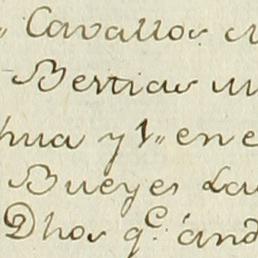 Cavallos
Bestias
hua y 1" en
Bueyes La
Dhos q.e and